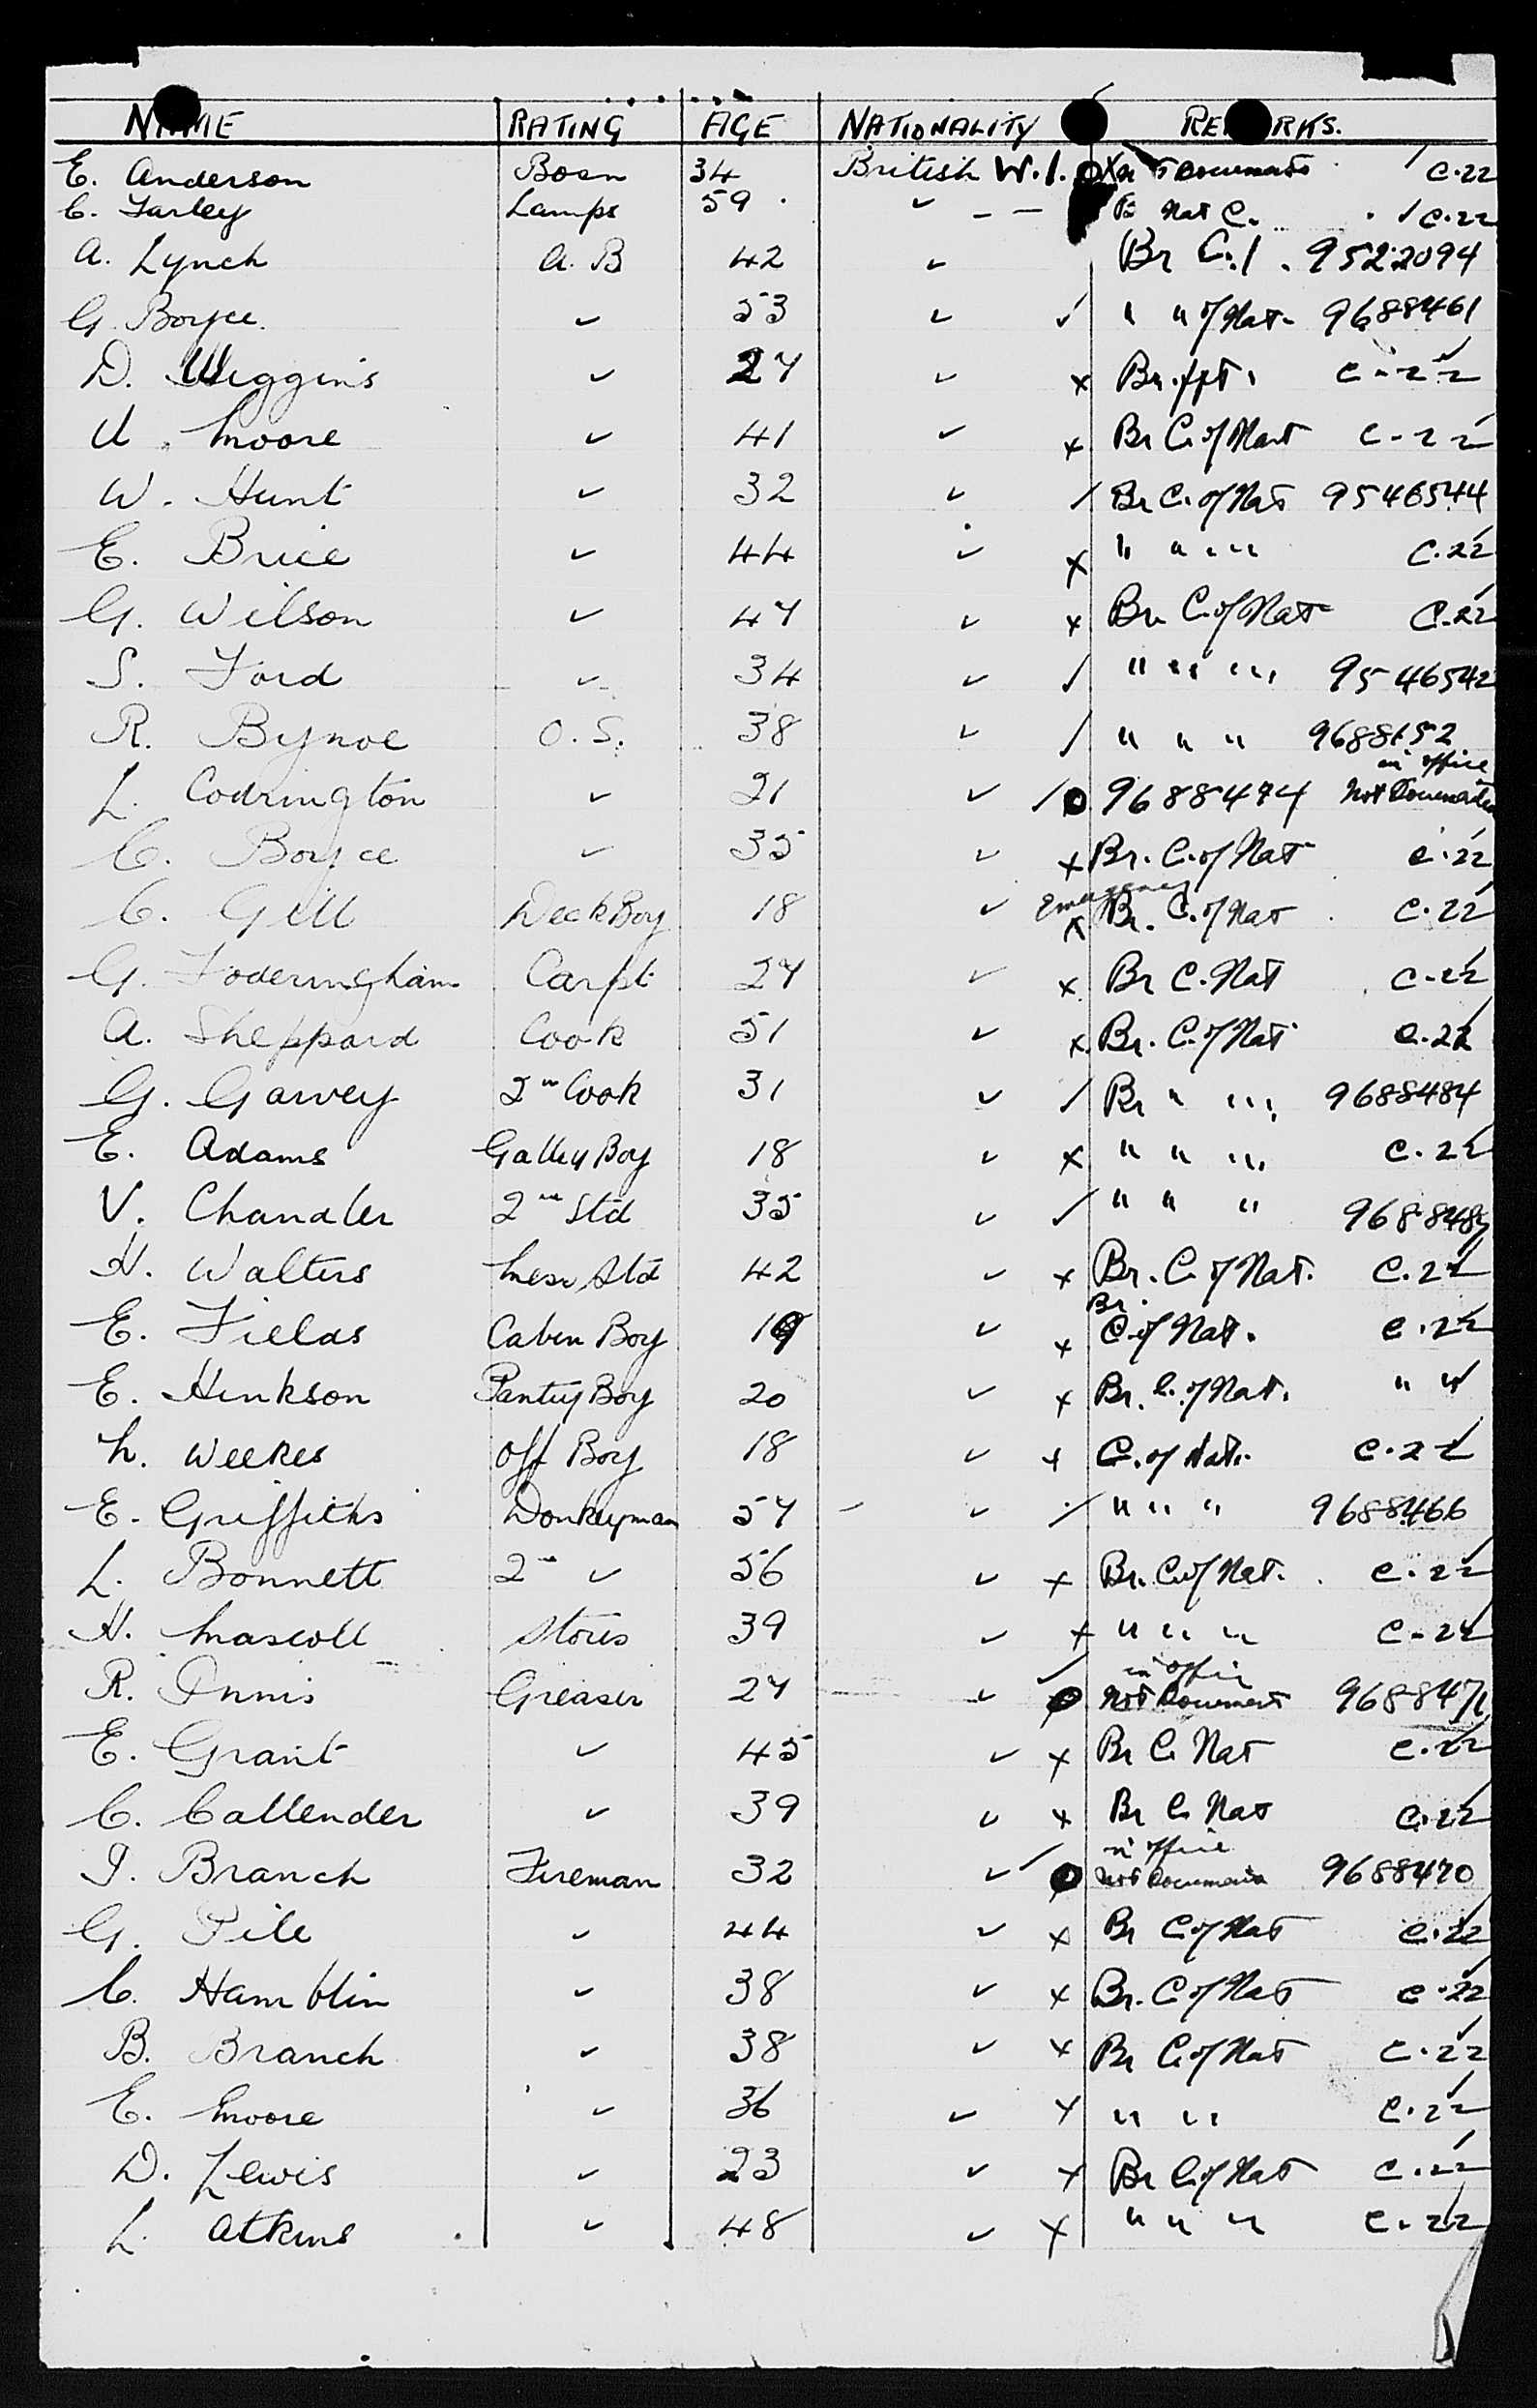 NAME RATING AGE NATIONALITY REMARKS.
E. Anderson Bosn 34 British W.I. Documents C.22
C. Farley Lamps 59 ✓ Nat C. ✓ C.22
A. Lynch A.B 42 ✓ Br C.I. 9522094
G. Boyce. ✓ 53 ✓ ✓ " " of Nat. 9688461
D. Wiggins ✓ 27 ✓ x Br. ppt. C-22
U. Moore ✓ 41 ✓ x Br C. of Nat C-22
W. Hunt ✓ 32 ✓ ✓ Br C. of Nat 9546544
E. Brice ✓ 44 ✓ x " " " " C.22
G. Wilson ✓ 47 ✓ x Br. C. of Nat C.22
S. Ford ✓ 34 ✓ ✓ " " " " 9546542
R. Bynoe O.S. 38 ✓ ✓ " " " 9688152
in office
L. Codrington ✓ 21 ✓ ✓ 9688474 Not Documented
C. Boyce ✓ 35 ✓ x Br. C. of Nat C.22
Emergency
C. Gill Deck Boy 18 ✓ x Br. C. of Nat C.22
G. Foderingham Carpt 27 ✓ x Br C. Nat C.22
A. Sheppard Cook 51 ✓ x Br. C. of Nat C.22
G. Garvey 2nd Cook 31 ✓ ✓ Br " " " 9688484
E. Adams Galley Boy 18 ✓ x " " " " C.22
V. Chandler 2nd Std 35 ✓ ✓ " " "
H. Walters Mess Std 42 ✓ x Br. C. of Nat. C.22
E. Fields Cabin Boy 19 ✓ x Br. C. of Nat. C.22
E. Hinkson Pantry Boy 20 ✓ x Br. C. of Nat. " "
L. Weekes Off Boy 18 ✓ x C. of Nat. C.22
E. Griffiths Donkeyman 57 ✓ ✓ " " " 9688466
L. Bonnett 2nd ✓ 56 ✓ x Br. C of Nat. C.22
H. Mascoll Stores 39 ✓ x " " " C-22
in office
R. Innis Greaser 27 ✓ ✓ Not Document 9688471
E. Grant ✓ 45 ✓ x Br C. Nat C.22
C. Callender ✓ 39 ✓ x Br C. Nat C.22
in office
I. Branch Fireman 32 ✓ ✓ Not Document 9688470
G. Pile ✓ 44 ✓ x Br C of Nat C.22
C. Hamblin ✓ 38 ✓ x Br. C of Nat C.22
B. Branch ✓ 38 ✓ x Br C of Nat C.22
E. Moore ✓ 36 ✓ x " " C.22
D. Lewis ✓ 23 ✓ x Br C of Nat C.22
L. Atkins ✓ 48 ✓ x " " " C.22